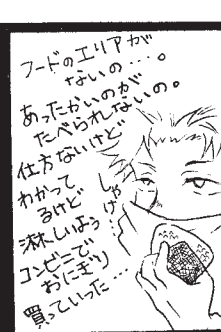 フードのエリアが
ないの…。
あったかいのが
たべられないの。
仕方ないけど
わかって
るけど
淋しいよう
コンビニで
おにぎり
買っていった…
しゃけ…